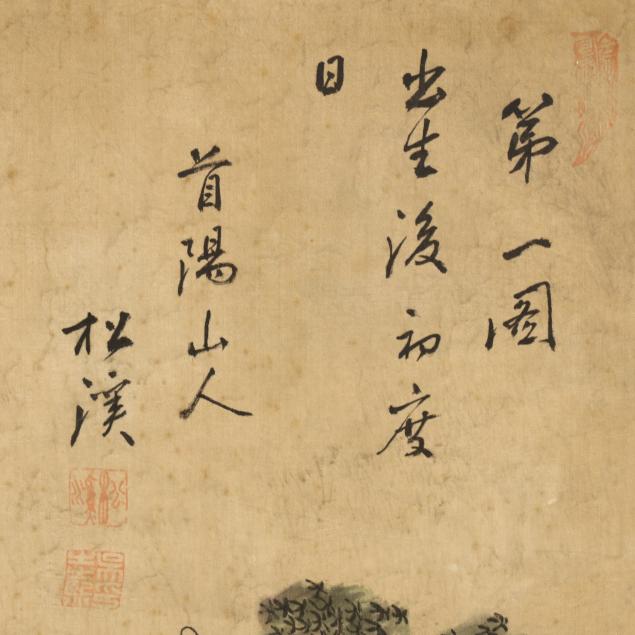 第一圖
出生後初度
日
首陽山人
松溪
松溪